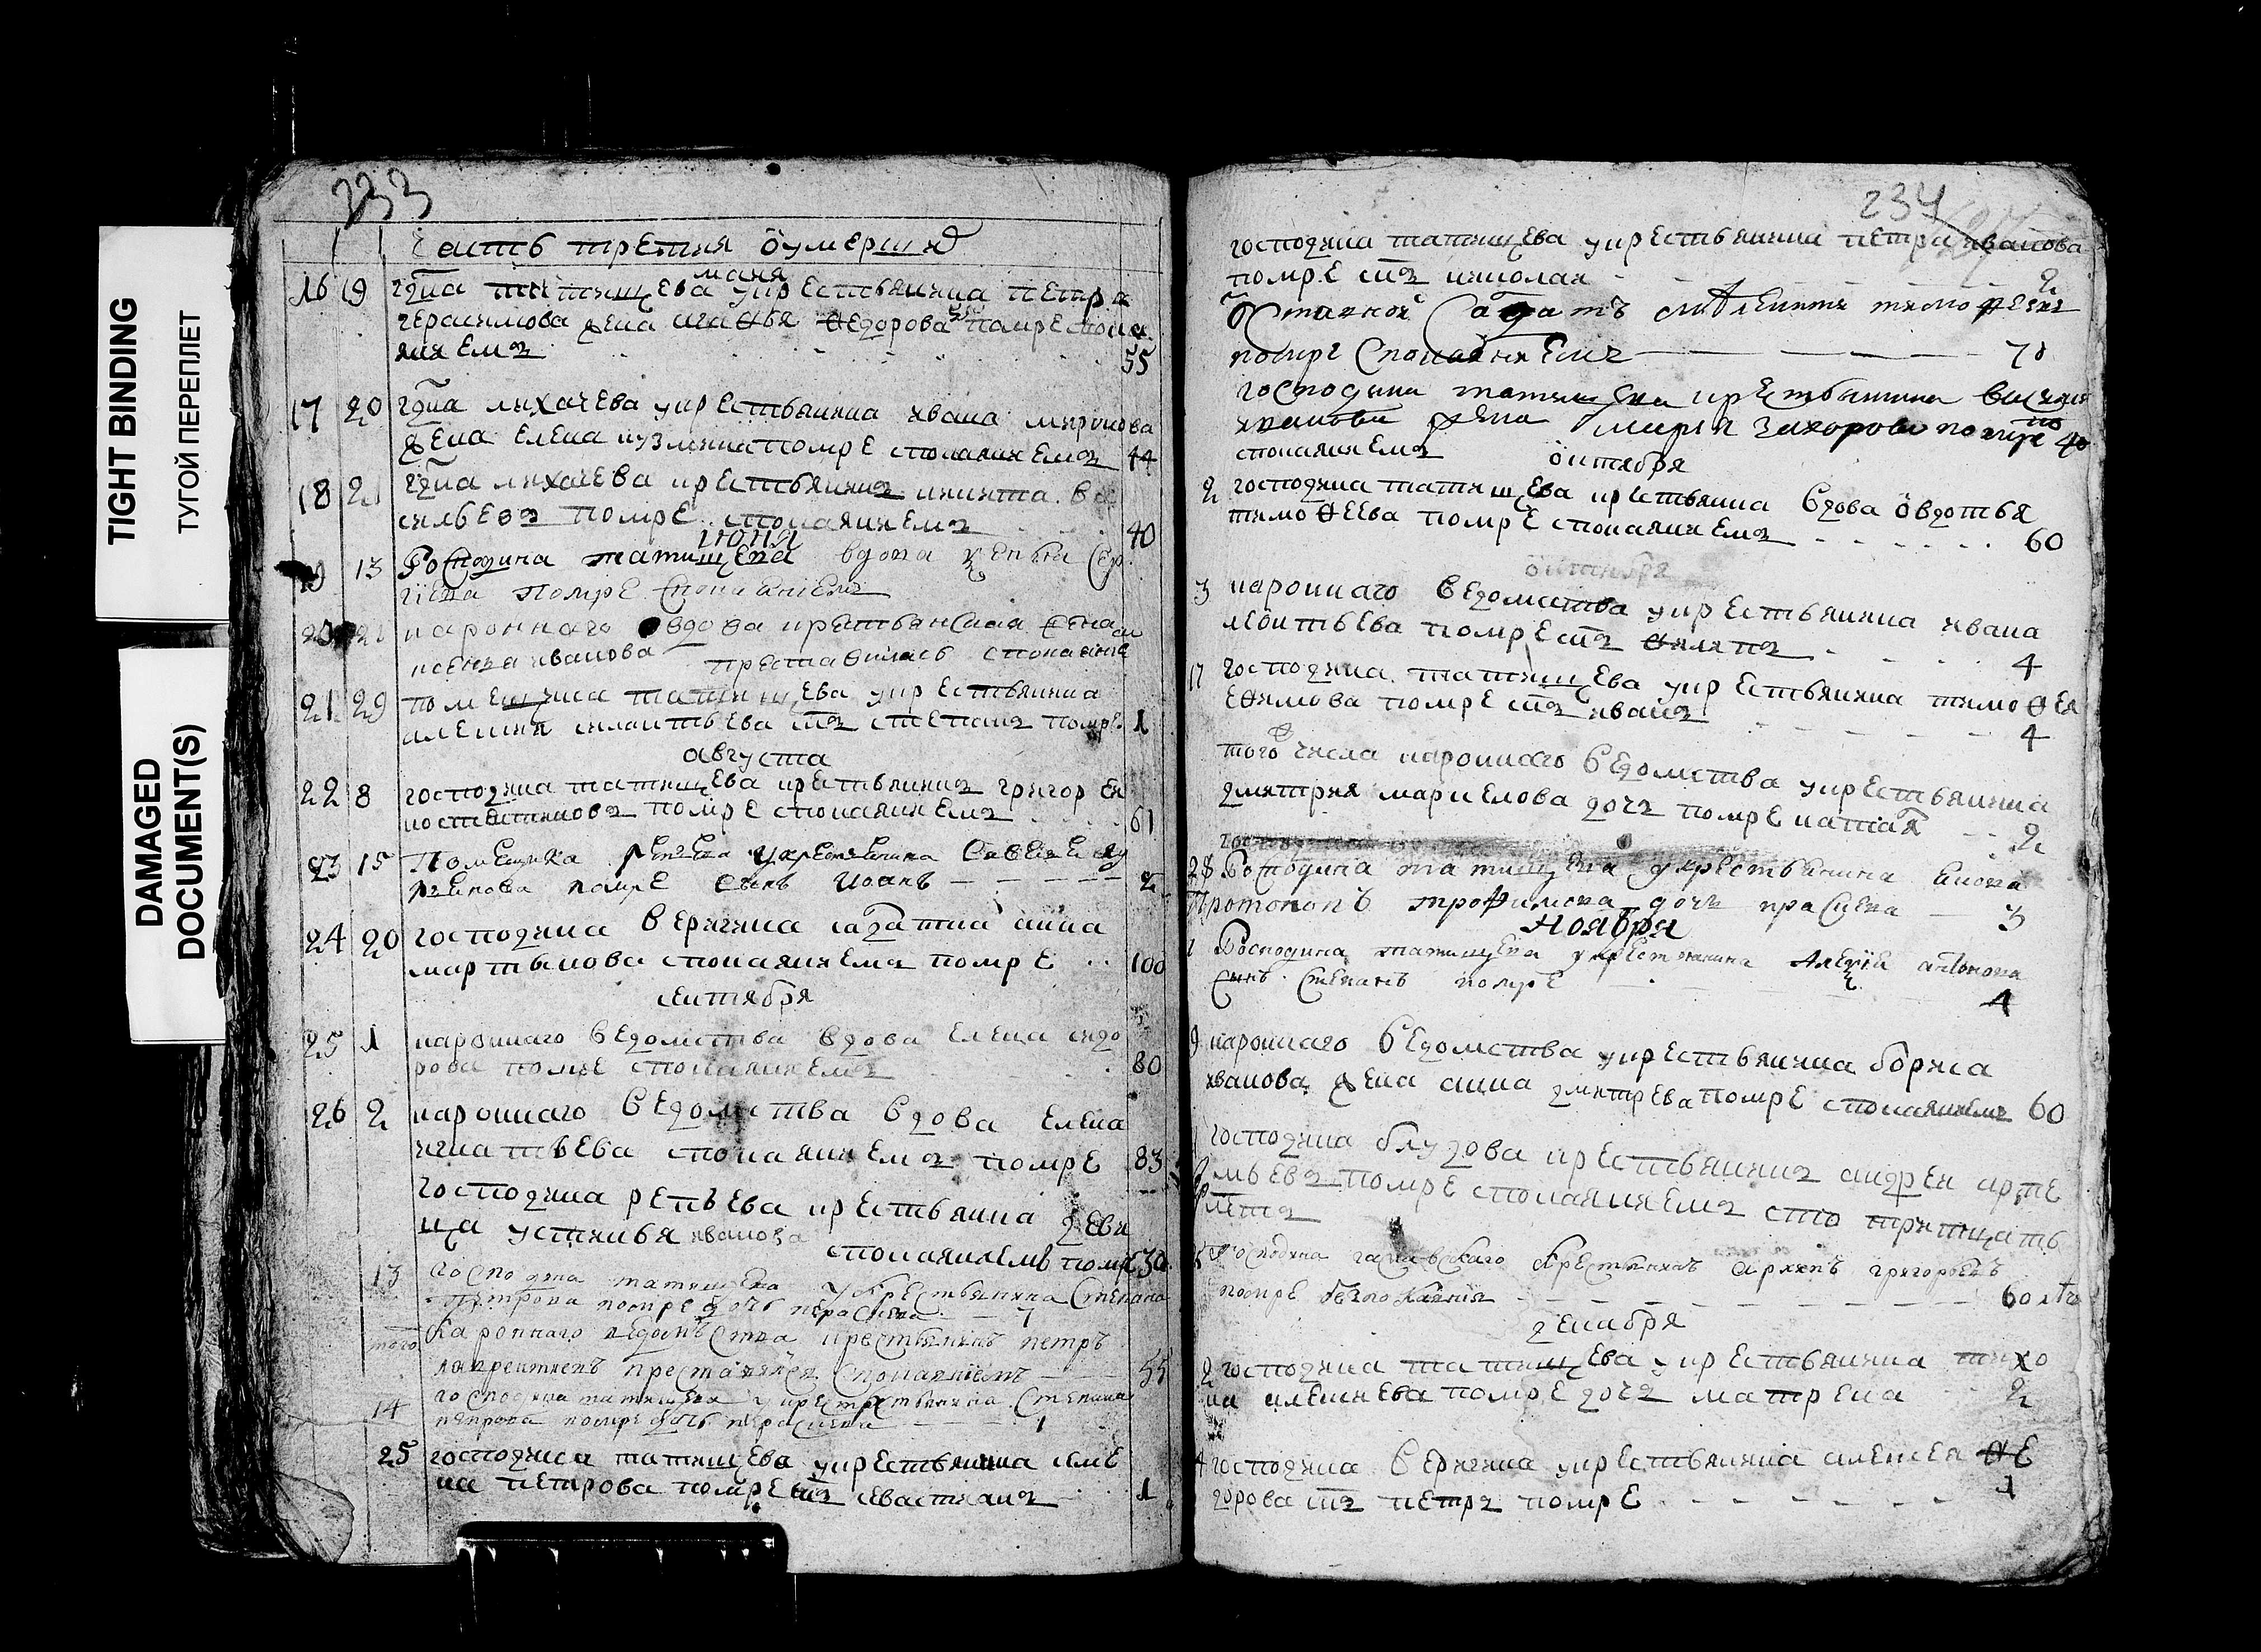 TIGHT BINDING
ТУГОЙ ПЕРЕПЛЕТ
DAMAGED
DOCUMENT(S)
233
часть третия о умерших
маия
16 19 гдна татищева у крестьянина петра
герасимова жена агафья федорова помре с пока
яниемъ 55
17 20 гдна лихачева у крестьянина ивана миронова
жена елена кузмина помре с покаяниемъ 44
18 21 гдна лихачева крестьянинъ никита ва
сильевъ помре с покаяниемъ 40
июня
19 13 Господина татищева вдова
помре с покаяниемъ
20 21 каронного вдова крестьянская жена
ксения иванова преставилась с покаяние
21 29 помещика татищева у крестьянина
алексея силантьева снъ степанъ помре 1
августа
22 8 господина татищева крестьянинъ григореи
костентиновъ помре с покаяниемъ 61
23 15 Помещика репьева у крестьянина
помре сынъ Иоанъ 2
24 20 господина веригина салдатка анна
мартынова с покаяниемъ помре 100
сентября
25 1 каронного ведомства вдова елена сидо
рова помре с покаяниемъ 80
26 2 каронного ведомства вдова елена
игнатьева с покаяниемъ помре 83
господина репьева крестьянка деви
ца устинья иванова
с покаяниемъ помре 30
13 господина татищева у крестьянина степана
петрова помре дочь параскева
того каронного ведомства крестьянинъ петръ
лаврентиевъ преставился с покаяниемъ 55
14 господина татищева у крестьянина степана
петрова помре дочь параскева 1
25 господина татищева у крестьянина семе
на петрова помре снъ севастиянъ 1
234
господина татищева у крестьянина петра иванова
помре снъ николаи 2
отставной салдатъ тимофеевъ
помре с покаяниемъ 70
господина татищева крестьянина василия
иванова жена марья захорова помре по 40
с покаяниемъ октября
2 господина татищева крестьянина вдова овдотья
тимофеева помре с покаяниемъ 60
октября
3 каронного ведомства у крестьянина ивана
леонтьева помре снъ филипъ 4
17 господина татищева у крестьянина тимофея
ефимова помре снъ иванъ 4
того числа каронного ведомства у крестьянина
дмитрия маркелова дочь помре наталя 2
28 Господина татищева у крестьянина
трофимова дочь параскева 3
Ноября
1 Господина татищева у крестьянина Алексея антонова
сынъ Степанъ помре 4
9 каронного ведомства у крестьянина бориса
иванова жена анна дмитрева помре с покаяниемъ 60
господина блудова крестьянинъ андреи арте
мьевъ помре с покаяниемъ сто тритцать
летъ
Господина крестьянинъ архипъ григорьевъ
помре без покаяния 60 летъ
декабря
2 господина татищева у крестьянина тихо
на алексиева помре дочь матрена 2
4 господина веригина у крестьянина алексея фе
дорова снъ петръ помре 1